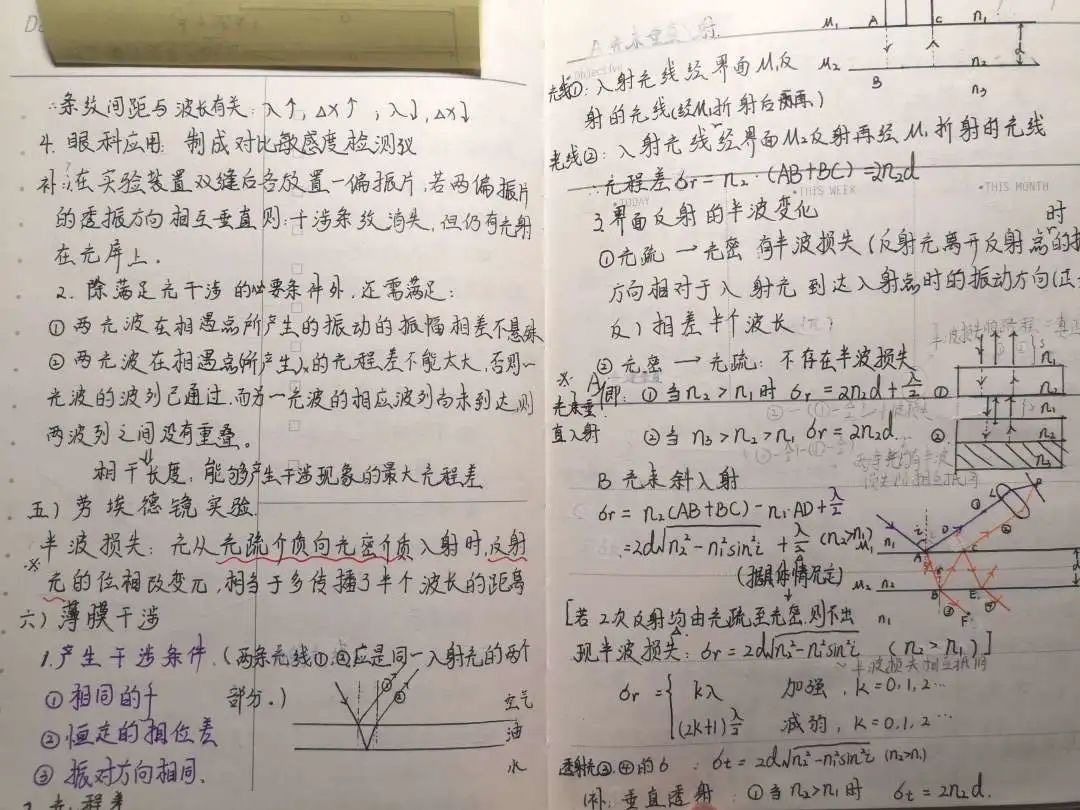 ∴条纹间距与波长有关: λ↑, Δx↑ ; λ↓, Δx↓
4. 眼科应用: 制成对比敏感度检测仪
补: 1.在实验装置双缝后各放置一偏振片,若两偏振片
的透振方向相互垂直则:干涉条纹消失,但仍有光射
在光屏上。
2. 除满足光干涉的必要条件外,还需满足:
① 两光波在相遇点所产生的振动的振幅相差不悬殊
② 两光波在相遇点所产生的光程差不能太大,否则一
光波的波列已通过,而另一光波的相应波列尚未到达,则
两波列之间没有重叠。
相干长度: 能够产生干涉现象的最大光程差
五) 劳埃德镜实验
半波损失: 光从光疏介质向光密介质入射时,反射
※光的位相改变π,相当于多传播了半个波长的距离
六) 薄膜干涉
1. 产生干涉条件. (两条光线①,②应是同一入射光的两个
① 相同的f 部分。)
② 恒定的相位差
③ 振动方向相同.
① ②
空气
油
水
2. 光程差
A 光束垂直入射.
M₁ A C n₁
M₂ B n₂ d
n₃
光线①: 入射光线经界面M₁反
射的光线
光线②: 入射光线经界面M₂反射再经M₁折射的光线
∴光程差δr = n₂·(AB+BC) = 2n₂d
TODAY
THIS WEEK
THIS MONTH
objective
3.界面反射的半波变化
①光疏 → 光密 有半波损失 (反射光离开反射点时的振
方向相对于入射光到达入射点时的振动方向(正
反) 相差半个波长
② 光密 → 光疏: 不存在半波损失
※ A 光束垂直入射
即: ① 当n₂ > n₁时 δr = 2n₂d + λ/2 ①
② 当n₃ > n₂ > n₁ δr = 2n₂d ②
n₁
n₂
n₁
n₂
n₃
B 光束斜入射
δr = n₂(AB+BC) − n₁·AD + λ/2
= 2d√n₂²−n₁²sin²i + λ/2 (n₂>n₁)
(据具体情况定)
M₁ n₁ A i D C
M₂ n₂ B E d
n₁ F
① ② ③ ④
[若2次反射均由光疏至光密,则不出
现半波损失: δr = 2d√n₂²−n₁²sin²i (n₂ > n₁)]
半波损失相互抵消
δr = { kλ 加强, k = 0,1,2…
(2k+1)λ/2 减弱, k = 0,1,2…
透射光③,④的δ : δt = 2d√n₂²−n₁²sin²i (n₂>n₁)
(补: 垂直透射: ①当n₂>n₁时 δt = 2n₂d.